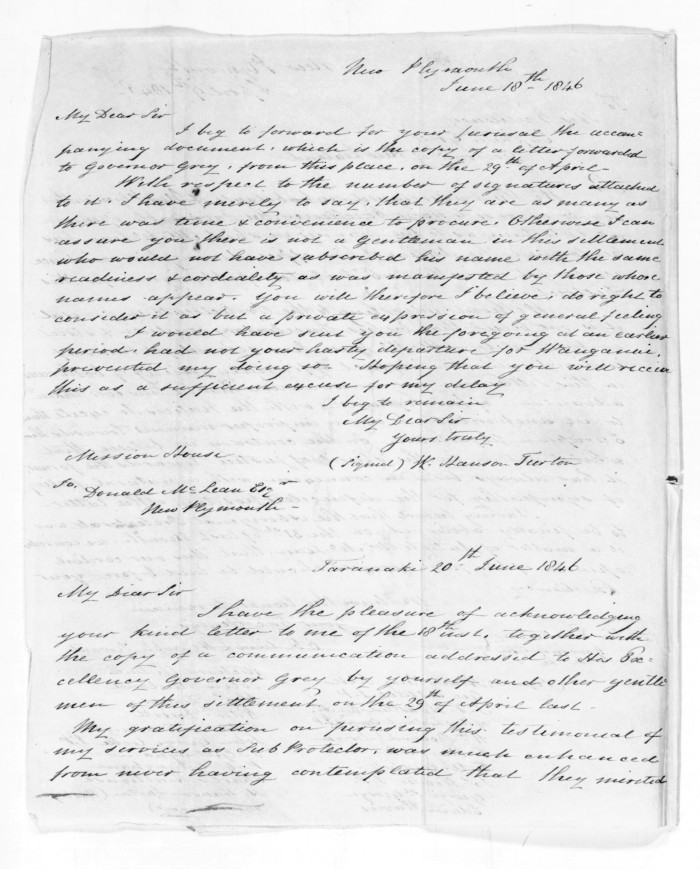 New Plymouth
June 18th 1846
My Dear Sir
I beg to forward for your perusal the accom-
panying document, which is the copy of a letter forwarded
to Governor Grey, from this place, on the 29th of April.
With respect to the number of signatures attached
to it. I have merely to say, that they are as many as
there was time & convenience to procure. Otherwise I can
assure you there is not a Gentleman in this settlement
who would not have subscribed his name with the same
readiness & cordiality as was manifested by those whose
names appear. You will therefore I believe, do right to
consider it as but a private expression of general feeling
I would have sent you the foregoing at an earlier
period, had not your hasty departure for Wanganui,
prevented my doing so. Hoping that you will receive
this as a sufficient excuse for my delay
I beg to remain
My Dear Sir
Yours truly
(Signed) H. Hanson Turton
Mission House
To, Donald McLean Esqr
New Plymouth
Taranaki 20th June 1846
My Dear Sir
I have the pleasure of acknowledging
your kind letter to me of the 18th inst. together with
the copy of a communication addressed to His Ex-
cellency Governor Grey by yourself and other gentle
men of this settlement on the 29th of April last.
My gratification on perusing this testimonial of
my services as Sub Protector, was much enhanced
from never having contemplated that they merited